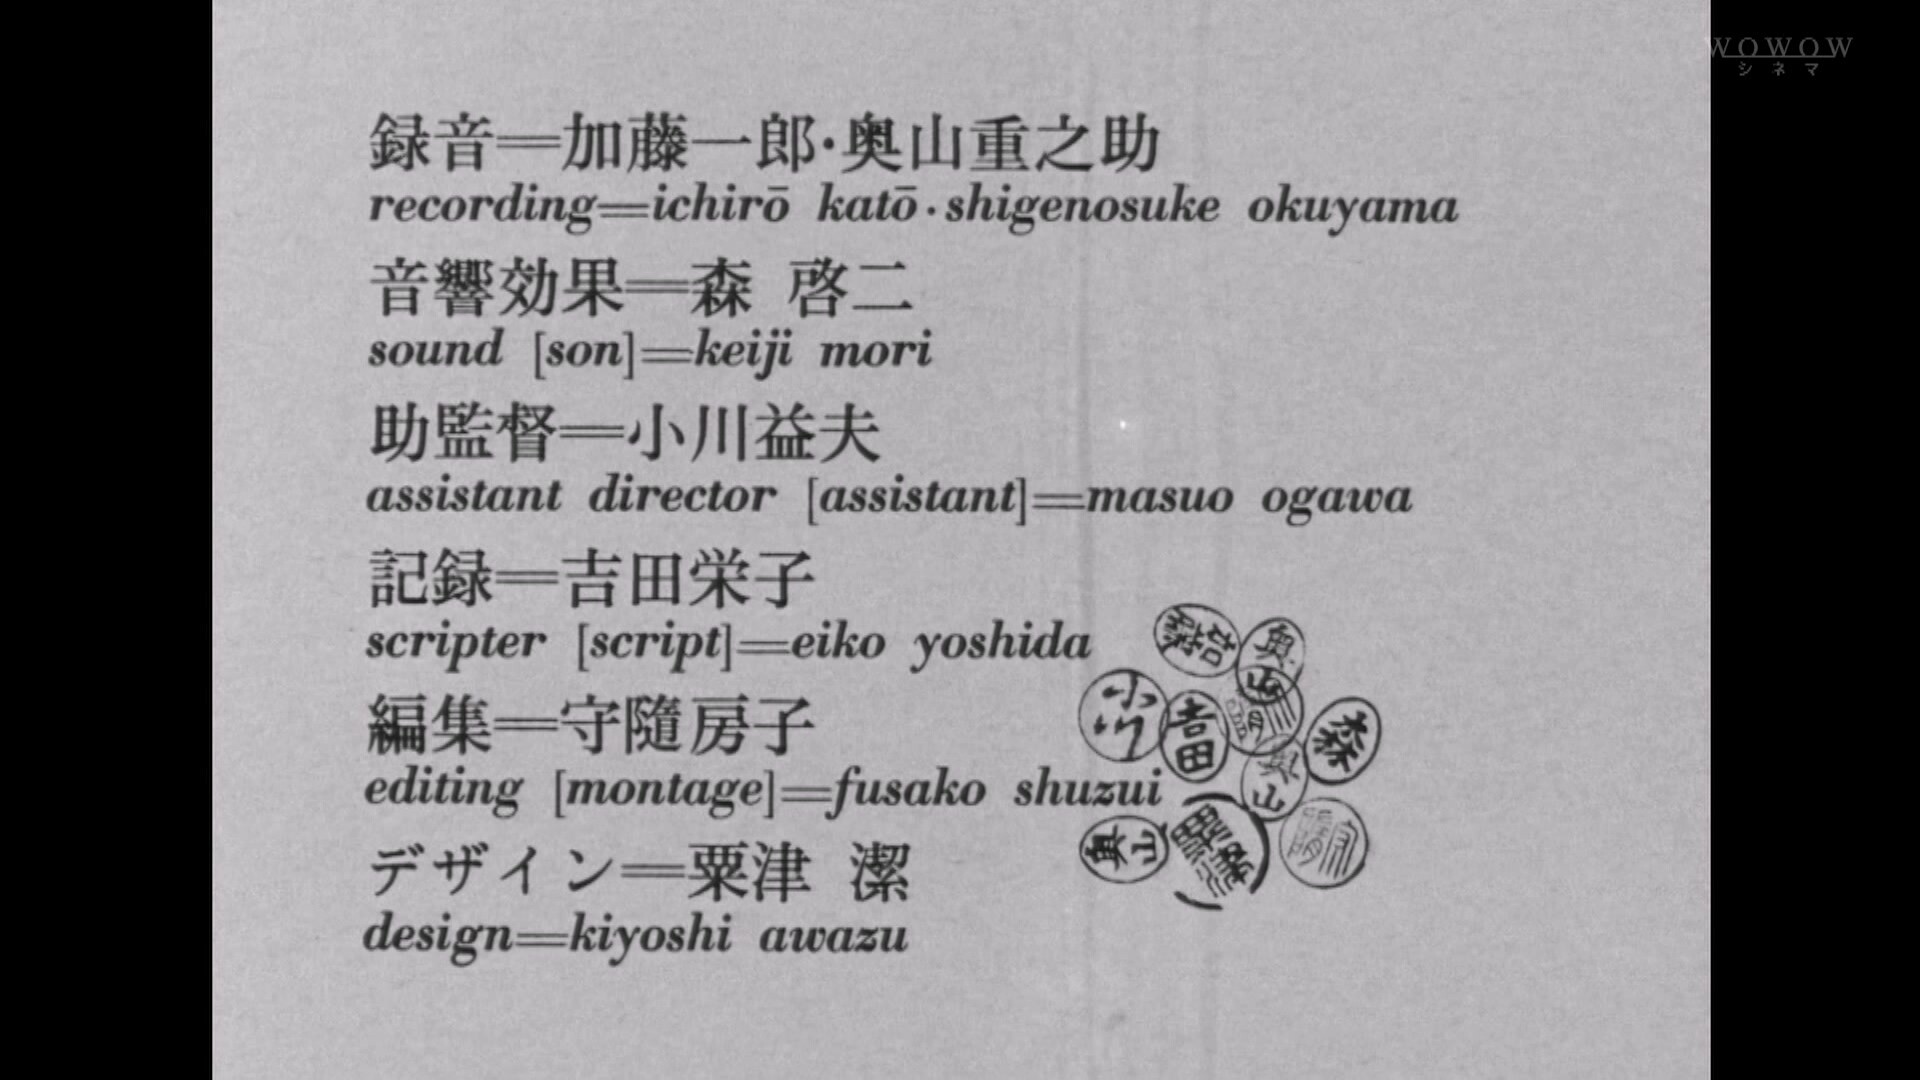 WOWOW
シネマ
録音＝加藤一郎・奥山重之助
recording=ichirō katō・shigenosuke okuyama
音響効果＝森 啓二
sound [son]=keiji mori
助監督＝小川益夫
assistant director [assistant]=masuo ogawa
記録＝吉田栄子
scripter [script]=eiko yoshida
編集＝守隨房子
editing [montage]=fusako shuzui
デザイン＝粟津 潔
design=kiyoshi awazu
奥山
小川
吉田
森
奥山
奥山